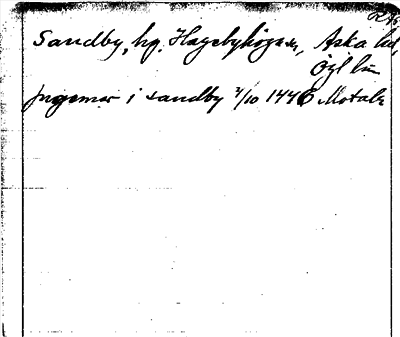 Sandby, hg. Hagebyhöga sn, Aska hd,
Ögl län
Ingemar i Sandby 2/10 1446 Motala